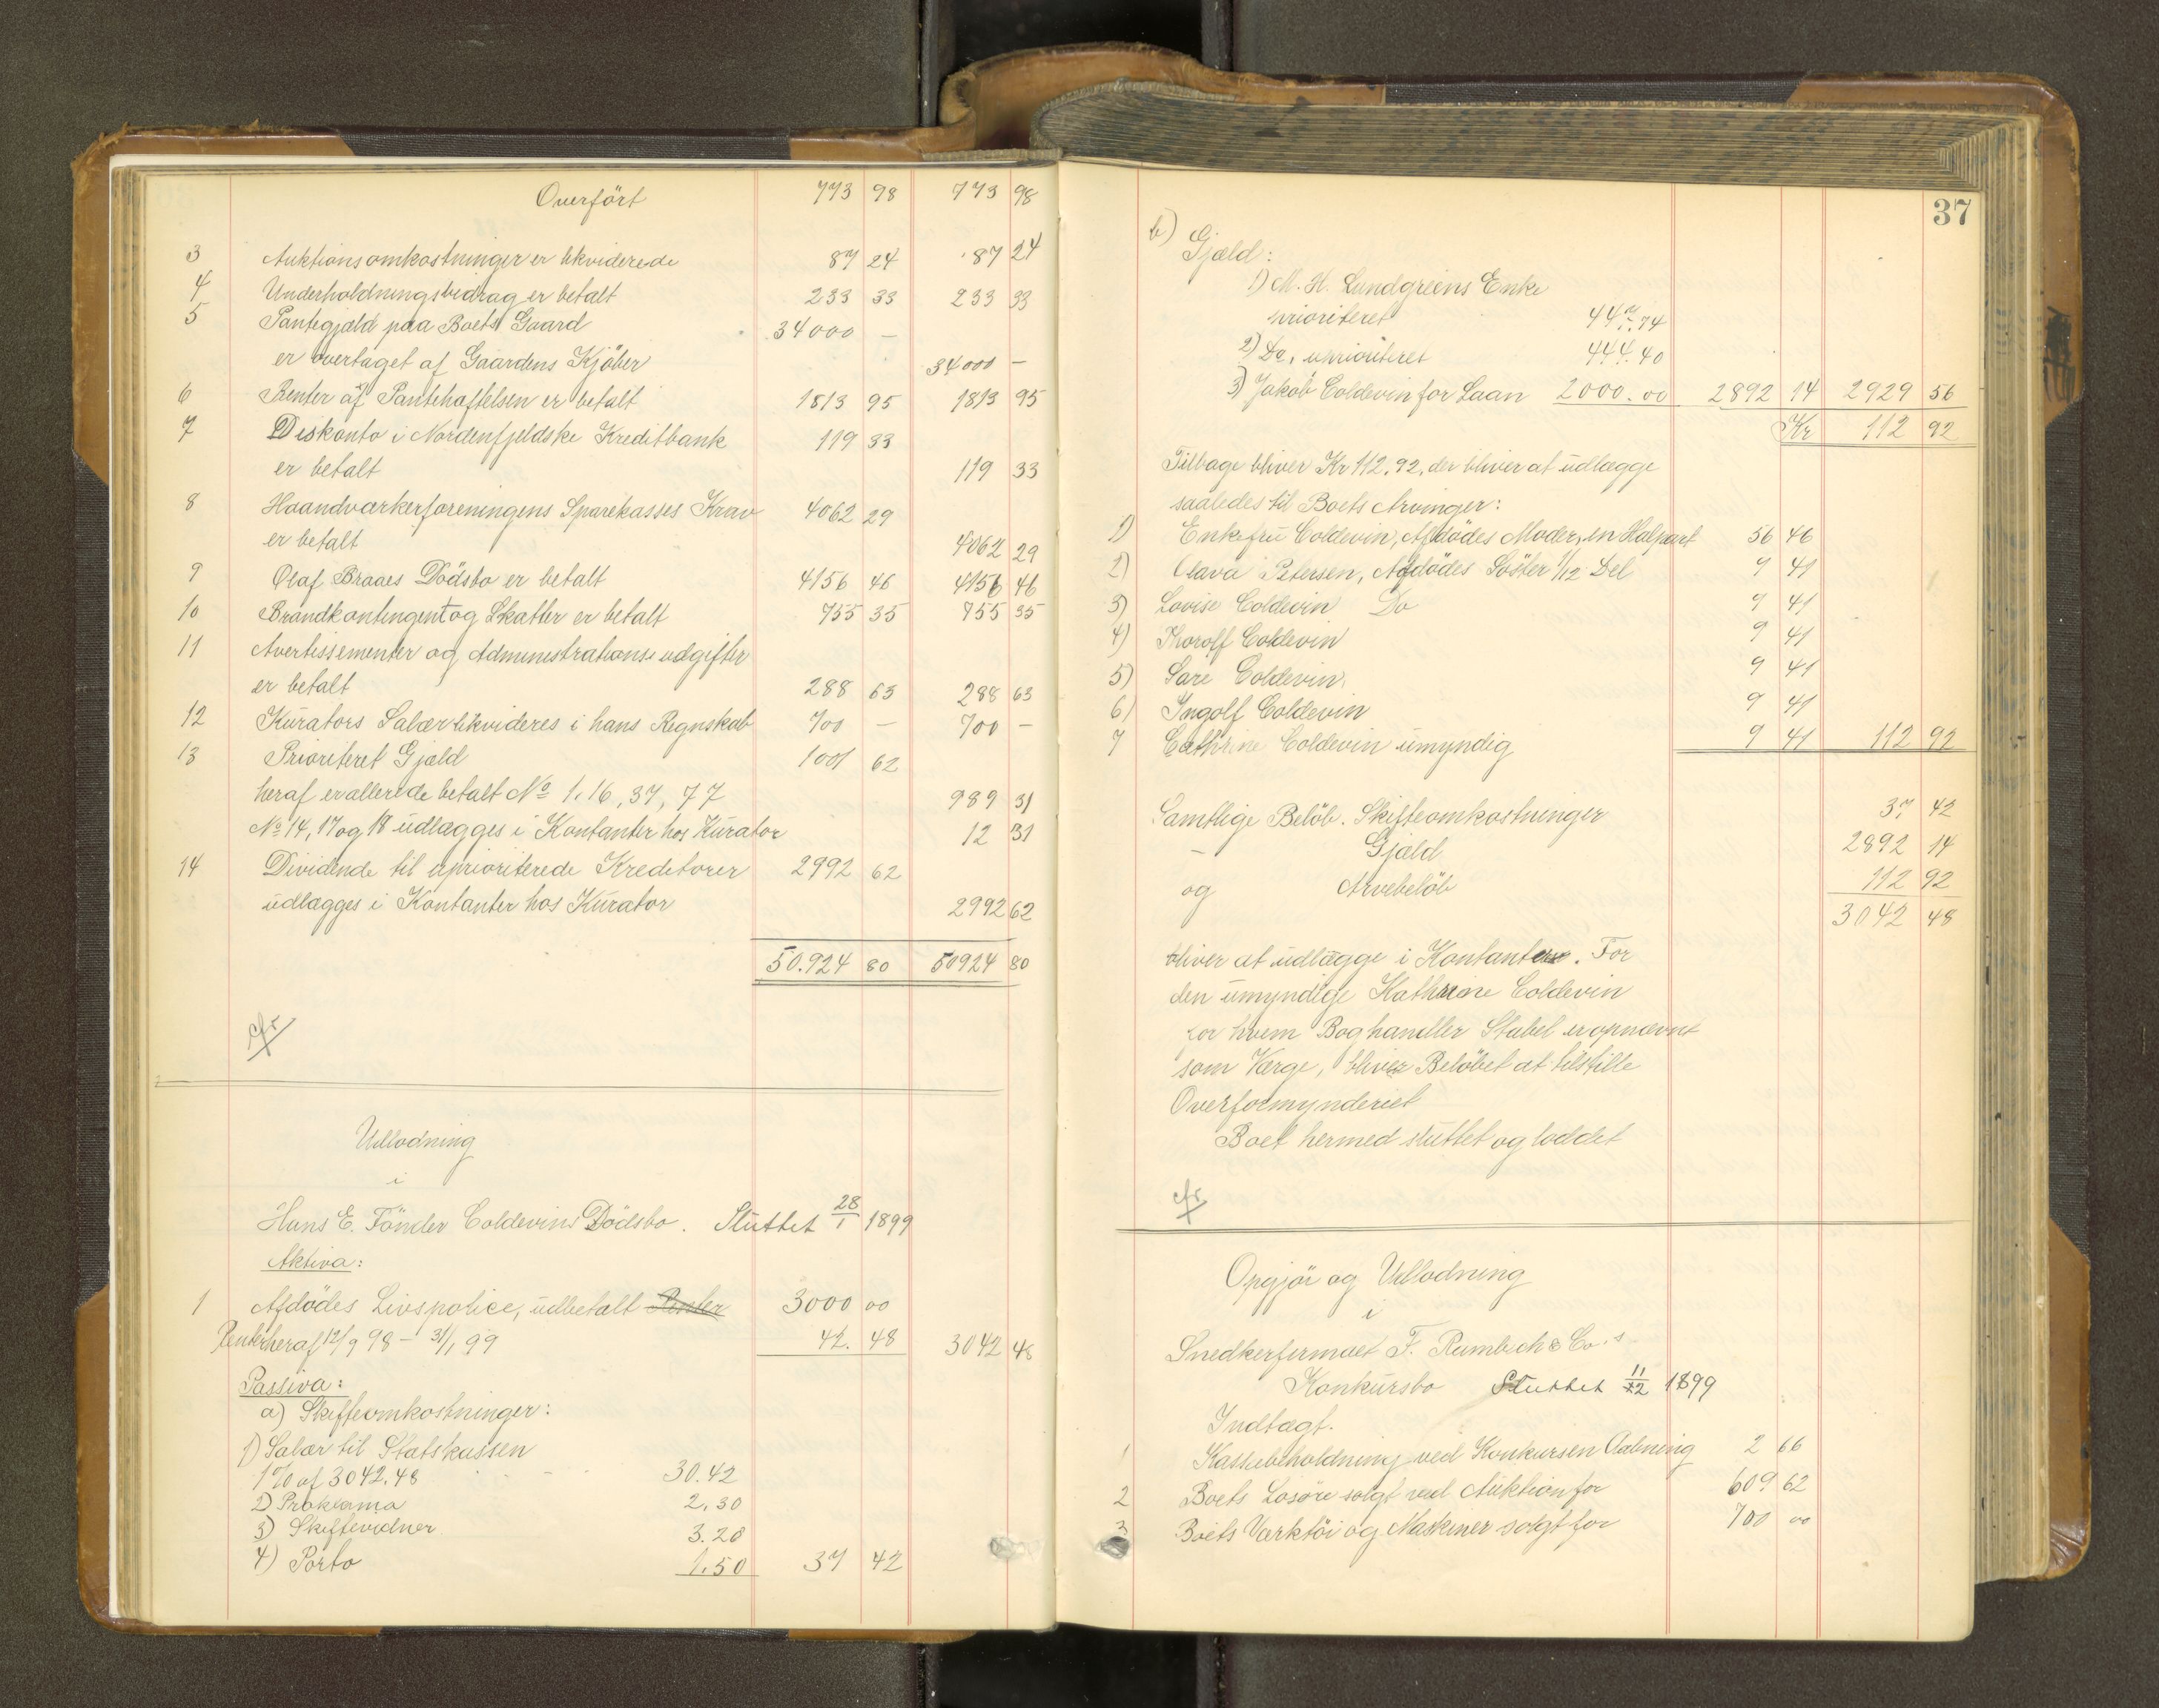 Overfört 773 98 773 98
3 Auktionsomkostninger er likviderede 87 24 87 24
4 Underholdningsbidrag er betalt 233 33 233 33
5 Pantegjæld paa Boets Gaard 34000 —
er overtaget af Gaardens Kjöber 34000 —
6 Renter af Pantehæftelsen er betalt 1813 95 1813 95
7 Diskonto i Nordenfjeldske Kreditbank 119 33
er betalt 119 33
8 Haandværkerforeningens Sparekasses Krav 4062 29
er betalt 4062 29
9 Olaf Braaes Dödsbo er betalt 4156 46 4156 46
10 Brandkontingent og Skatter er betalt 755 35 755 35
11 Avertissementer og Administrations udgifter
er betalt 288 63 288 63
12 Kurators Salær likvideres i hans Regnskab 700 — 700 —
13 Prioriteret Gjæld 1001 62
heraf er allerede betalt No 1, 16, 37, 77 989 31
No 14, 17 og 18 udlægges i Kontanter hos Kurator 12 31
14 Dividende til uprioriterede Kreditorer 2992 62
udlægges i Kontanter hos Kurator 2992 62
50.924 80 50924 80
cfr
Udlodning
i
Hans E. Coldevins Dödsbo. Sluttet 28/1 1899
Aktiva:
1 Afdödes Livspolice, udbetalt Renter 3000 00
Renter heraf 12/9 98 – 31/1 99 42. 48 3042 48
Passiva:
a) Skifteomkostninger:
1) Salær til Statskassen
1% af 3042.48 30.42
2) Proklama 2.30
3) Skiftevidner 3.20
4) Porto 1.50 37 42
37
b) Gjæld:
1) M. H. Lundgreens Enke
prioriteret 447.74
2) Do, uprioriteret 444.40
3) Jakob Coldevin for Laan 2000.00 2892 14 2929 56
Kr 112 92
Tilbage bliver Kr 112.92, der bliver at udlægge
saaledes til Boets Arvinger:
1) Enkefru Coldevin, Afdödes Moder, en Halpart 56 46
2) Olava Petersen, Afdödes Söster 1/12 Del 9 41
3) Lovise Coldevin Do 9 41
4) Thorolf Coldevin 9 41
5) Sare Coldevin 9 41
6) Ingolf Coldevin 9 41
7 Cathrine Coldevin umyndig 9 41 112 92
Samtlige Belöb. Skifteomkostninger 37 42
– Gjæld 2892 14
og Arvebelöb 112 92
3042 48
bliver at udlægge i Kontanter. For
den umyndige Kathrine Coldevin
for hvem Boghandler Stabel er opnævnt
som Værge, bliver Belöbet at tilstille
Overformynderiet
Boet hermed sluttet og loddet
cfr
Opgjör og Udlodning
i
Snedkerfirmaet F. Rumbich & Co's
Konkursbo Sluttet 11/12 1899
Indtægt.
1 Kassebeholdning ved Konkursen Aabning 2 66
2 Boets Lösöre solgt ved Auktion for 609 62
3 Boets Værktöi og Maskiner solgt for 700 00